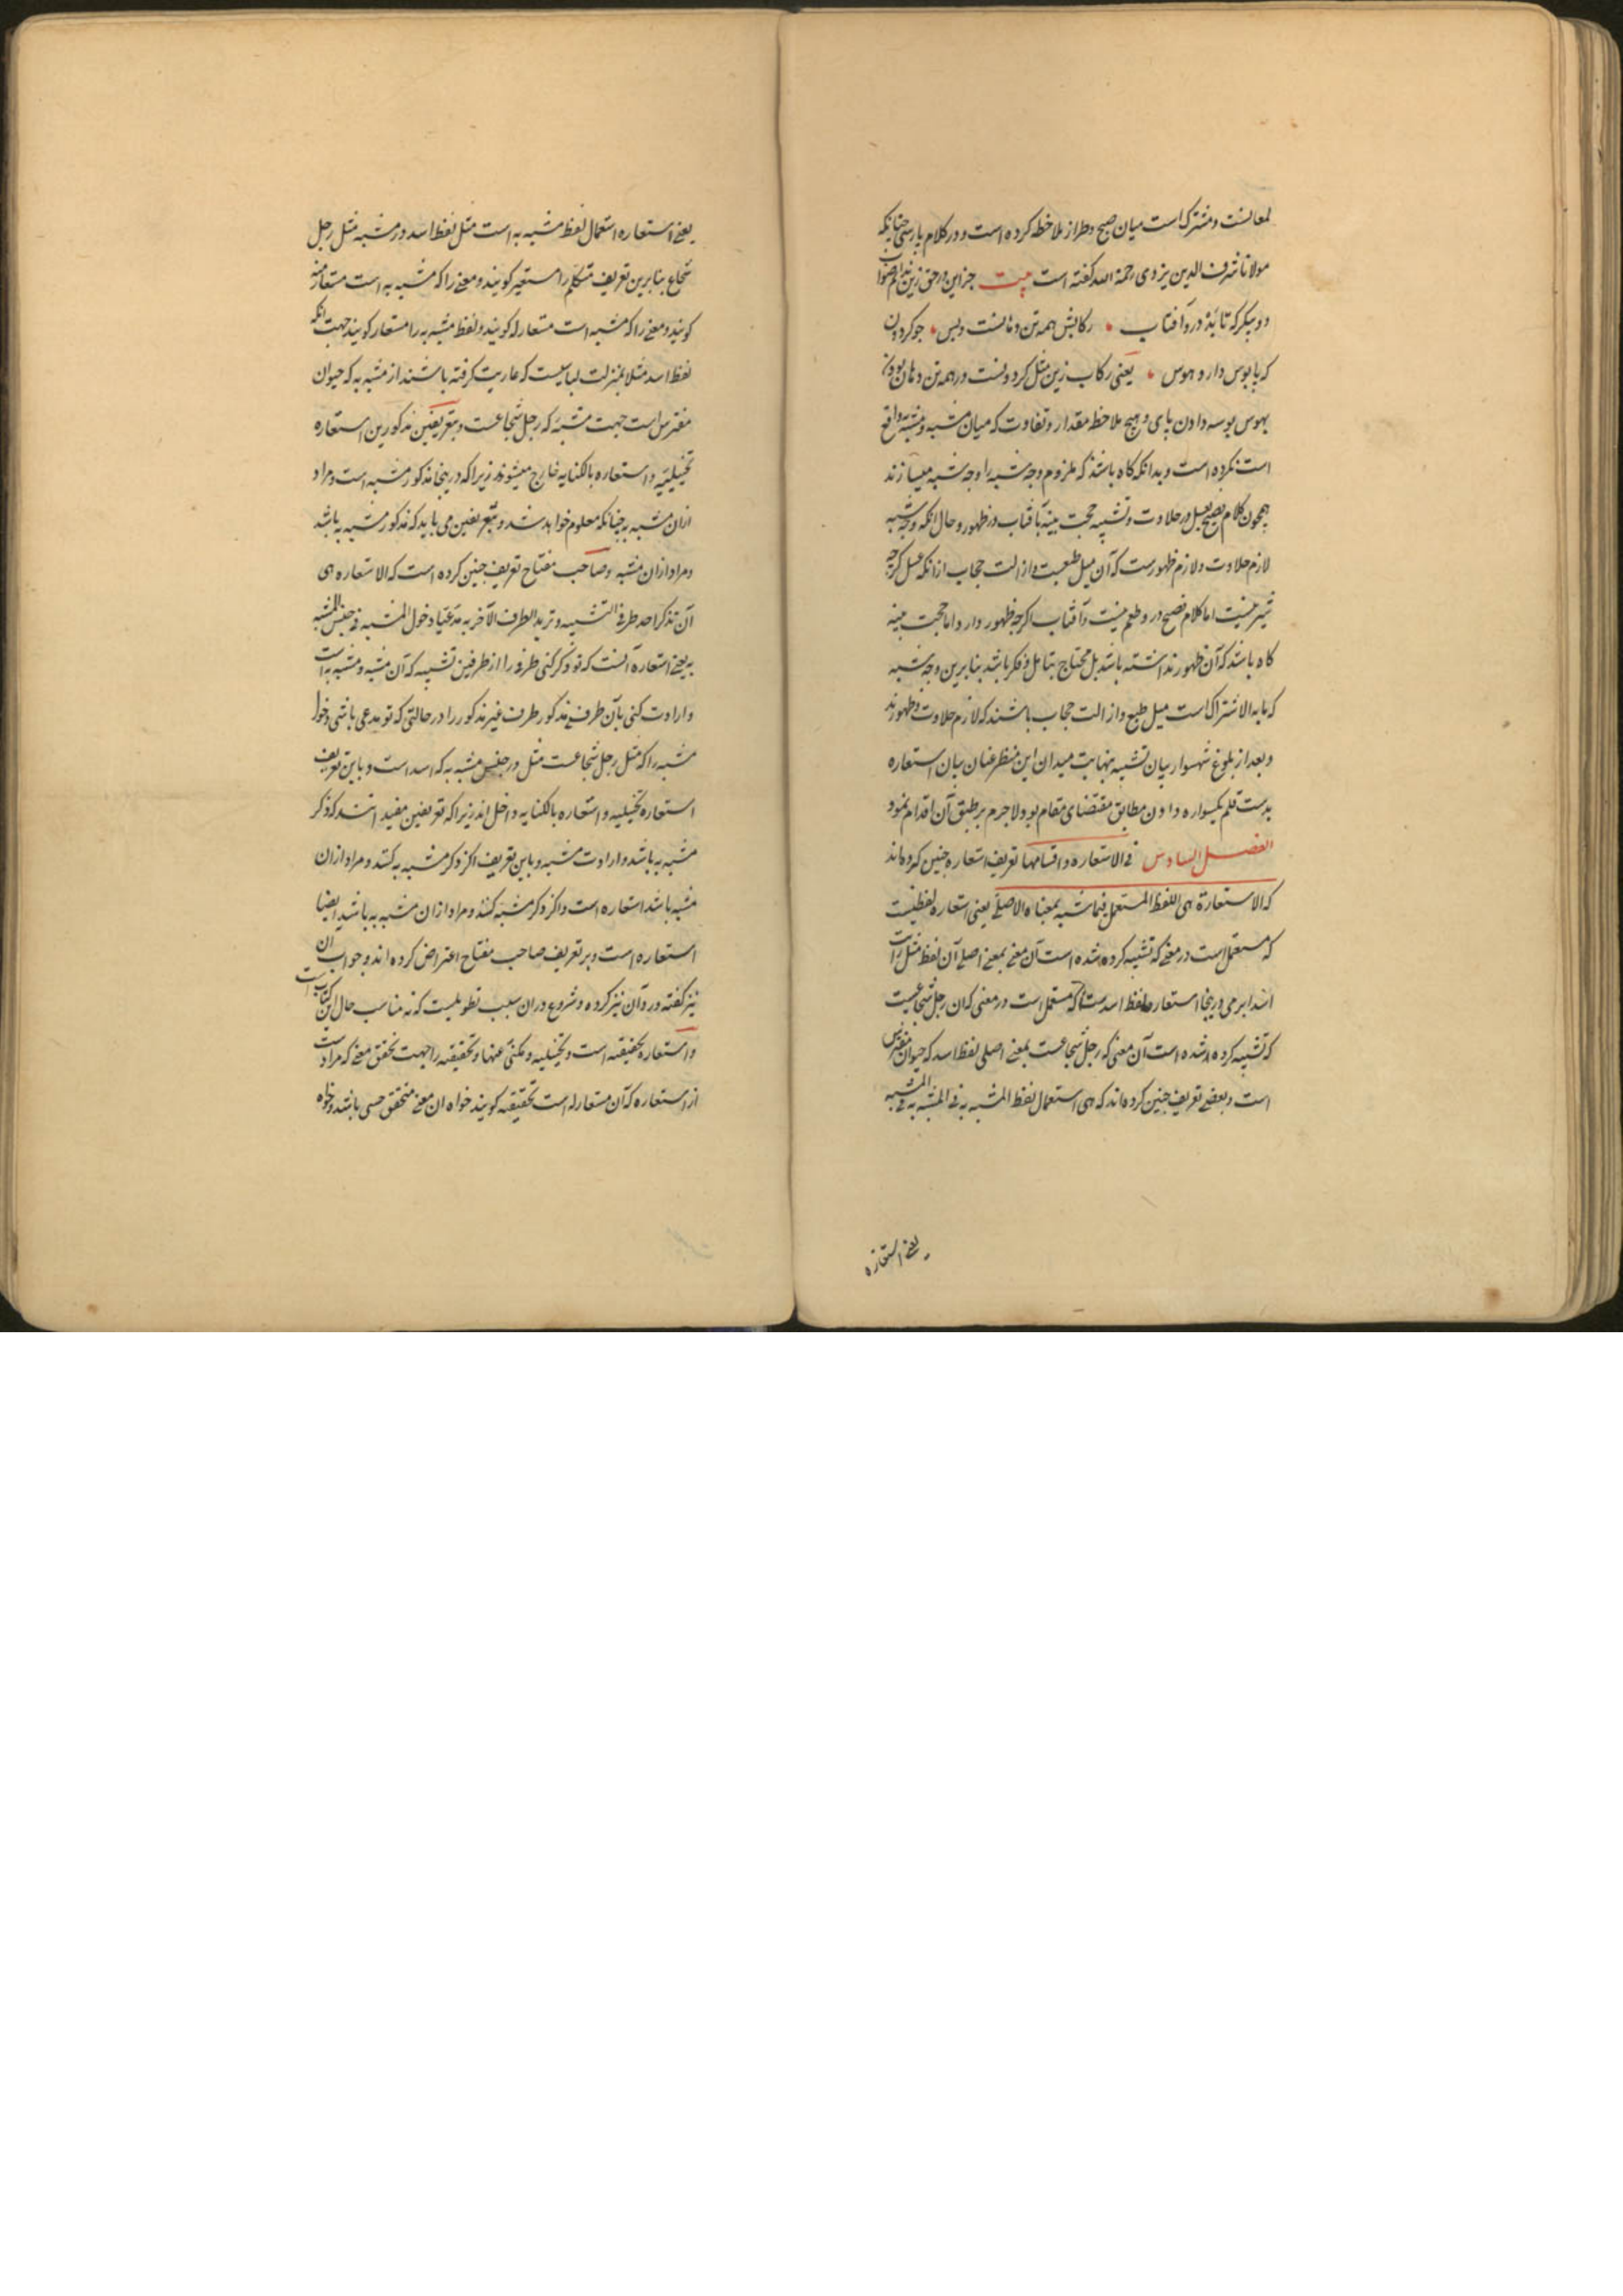 لمعانست و مشترک است میان صبح و طراز ملاحظه کرده است و در کلام پارسی چنانکه
مولانا شرف الدین یزدی رحمة الله گفته است بیت جز این در حق زین
دو پیکر که تابد درو آفتاب رکابش همه تن دهانست و بس جو کردون
که پابوس دارد هوس یعنی رکاب زین مثل کردونست و همه تن دهان بودن
بهوس بوسه دادن پای و هیچ ملاحظه مقدار و تفاوت که میان مشبه و مشبه به واقع
است نکرده است و بدانکه گاه باشد که ملزوم وجه شبه را وجه شبه میسازند
همچون کلام فصیح بعسل در حلاوت و تشبیه حجت بینه بآفتاب در ظهور و حال انکه وجه شبه
لازم حلاوت و لازم ظهورست که آن میل طبعست و ازالت حجاب ازانکه عسل کرچه
شیرینست اما کلام فصیح درو طعم نیست و آفتاب اکرچه ظهور دارد اما حجت بینه
گاه باشد که آن ظهور نداشته باشد بل محتاج بتامل و فکر باشد بنابرین وجه شبه
که مابه الاشتراک است میل طبع و ازالت حجاب باشند که لازم حلاوت و ظهورند
و بعد از بلوغ شهسوار بیان تشبیه بنهایت میدان این منظر عنان بیان استعاره
بدست قلم یکسواره دادن مطابق مقتضای مقام بود لاجرم بر طبق آن اقدام نمود
الفصل السادس فی الاستعاره و اقسامها تعریف استعاره چنین کرده‌اند
که الاستعارة هی اللفظ المستعمل فیما شبه بمعناه الاصلی یعنی استعاره لفظیست
که مستعمل است در معنی که تشبیه کرده شده است آن معنی بمعنی اصلی آن لفظ مثل رأیت
اسدا یرمی درینجا استعاره لفظ اسدست که مستعمل است در معنی که ان رجل شجاعست
که تشبیه کرده شده است آن معنی که رجل شجاعست بمعنی اصلی لفظ اسد که حیوان مفترس
است و بعضی تعریف چنین کرده‌اند که هی استعمال لفظ المشبه به فی المشبه
یعنی استعاره
یعنی استعاره استعمال لفظ مشبه به است مثل لفظ اسد در مشبه مثل رجل
شجاع بنابرین تعریف متکلم را مستعیر کویند و معنی را که مشبه به است مستعار منه
کویند و معنی را که مشبه است مستعار له کویند و لفظ مشبه به را مستعار کویند جهت انکه
لفظ اسد مثلا بمنزلت لباسیست که عاریت کرفته باشند از مشبه به که حیوان
مفترس است جهت مشبه که رجل شجاعست و بتعریفین مذکورین استعاره
تخییلیه و استعاره بالکنایه خارج میشوند زیرا که درینجا مذکور مشبه است و مراد
ازان مشبه به چنانکه معلوم خواهد شد و بتعریفین می باید که مذکور مشبه به باشد
و مراد ازان مشبه و صاحب مفتاح تعریف چنین کرده است که الاستعاره هی
آن تذکر احد طرفی التشبیه و ترید الطرف الآخر به مدعیا دخول المشبه فی جنس المشبه
به یعنی استعاره آنست که تو ذکر کنی طرفی را از طرفین تشبیه که آن مشبه و مشبه به است
و ارادت کنی بآن طرف مذکور طرف غیر مذکور را در حالتی که تو مدعی باشی دخول
مشبه را که مثل رجل شجاعست مثل در جنس مشبه به که اسد است و باین تعریف
استعاره تخییلیه و استعاره بالکنایه داخل اند زیرا که تعریفین مفید اند که ذکر
مشبه به باشد و ارادت مشبه و باین تعریف اکر ذکر مشبه به کنند و مراد ازان
مشبه باشد استعاره است و اکر ذکر مشبه کنند و مراد ازان مشبه به باشد ایضا
استعاره است و بر تعریف صاحب مفتاح اعتراض کرده اند و جواب ان
نیز گفته و رد آن نیز کرده و شروع دران سبب تطویلیست که نه مناسب حال این کتاب است
و استعاره تحقیقیه است و تخییلیه و مکنی عنها و تحقیقیه را جهت تحقق معنی که مرادست
از استعاره که آن مستعار له است تحقیقیه کویند خواه ان معنی متحقق حسی باشد و خواه